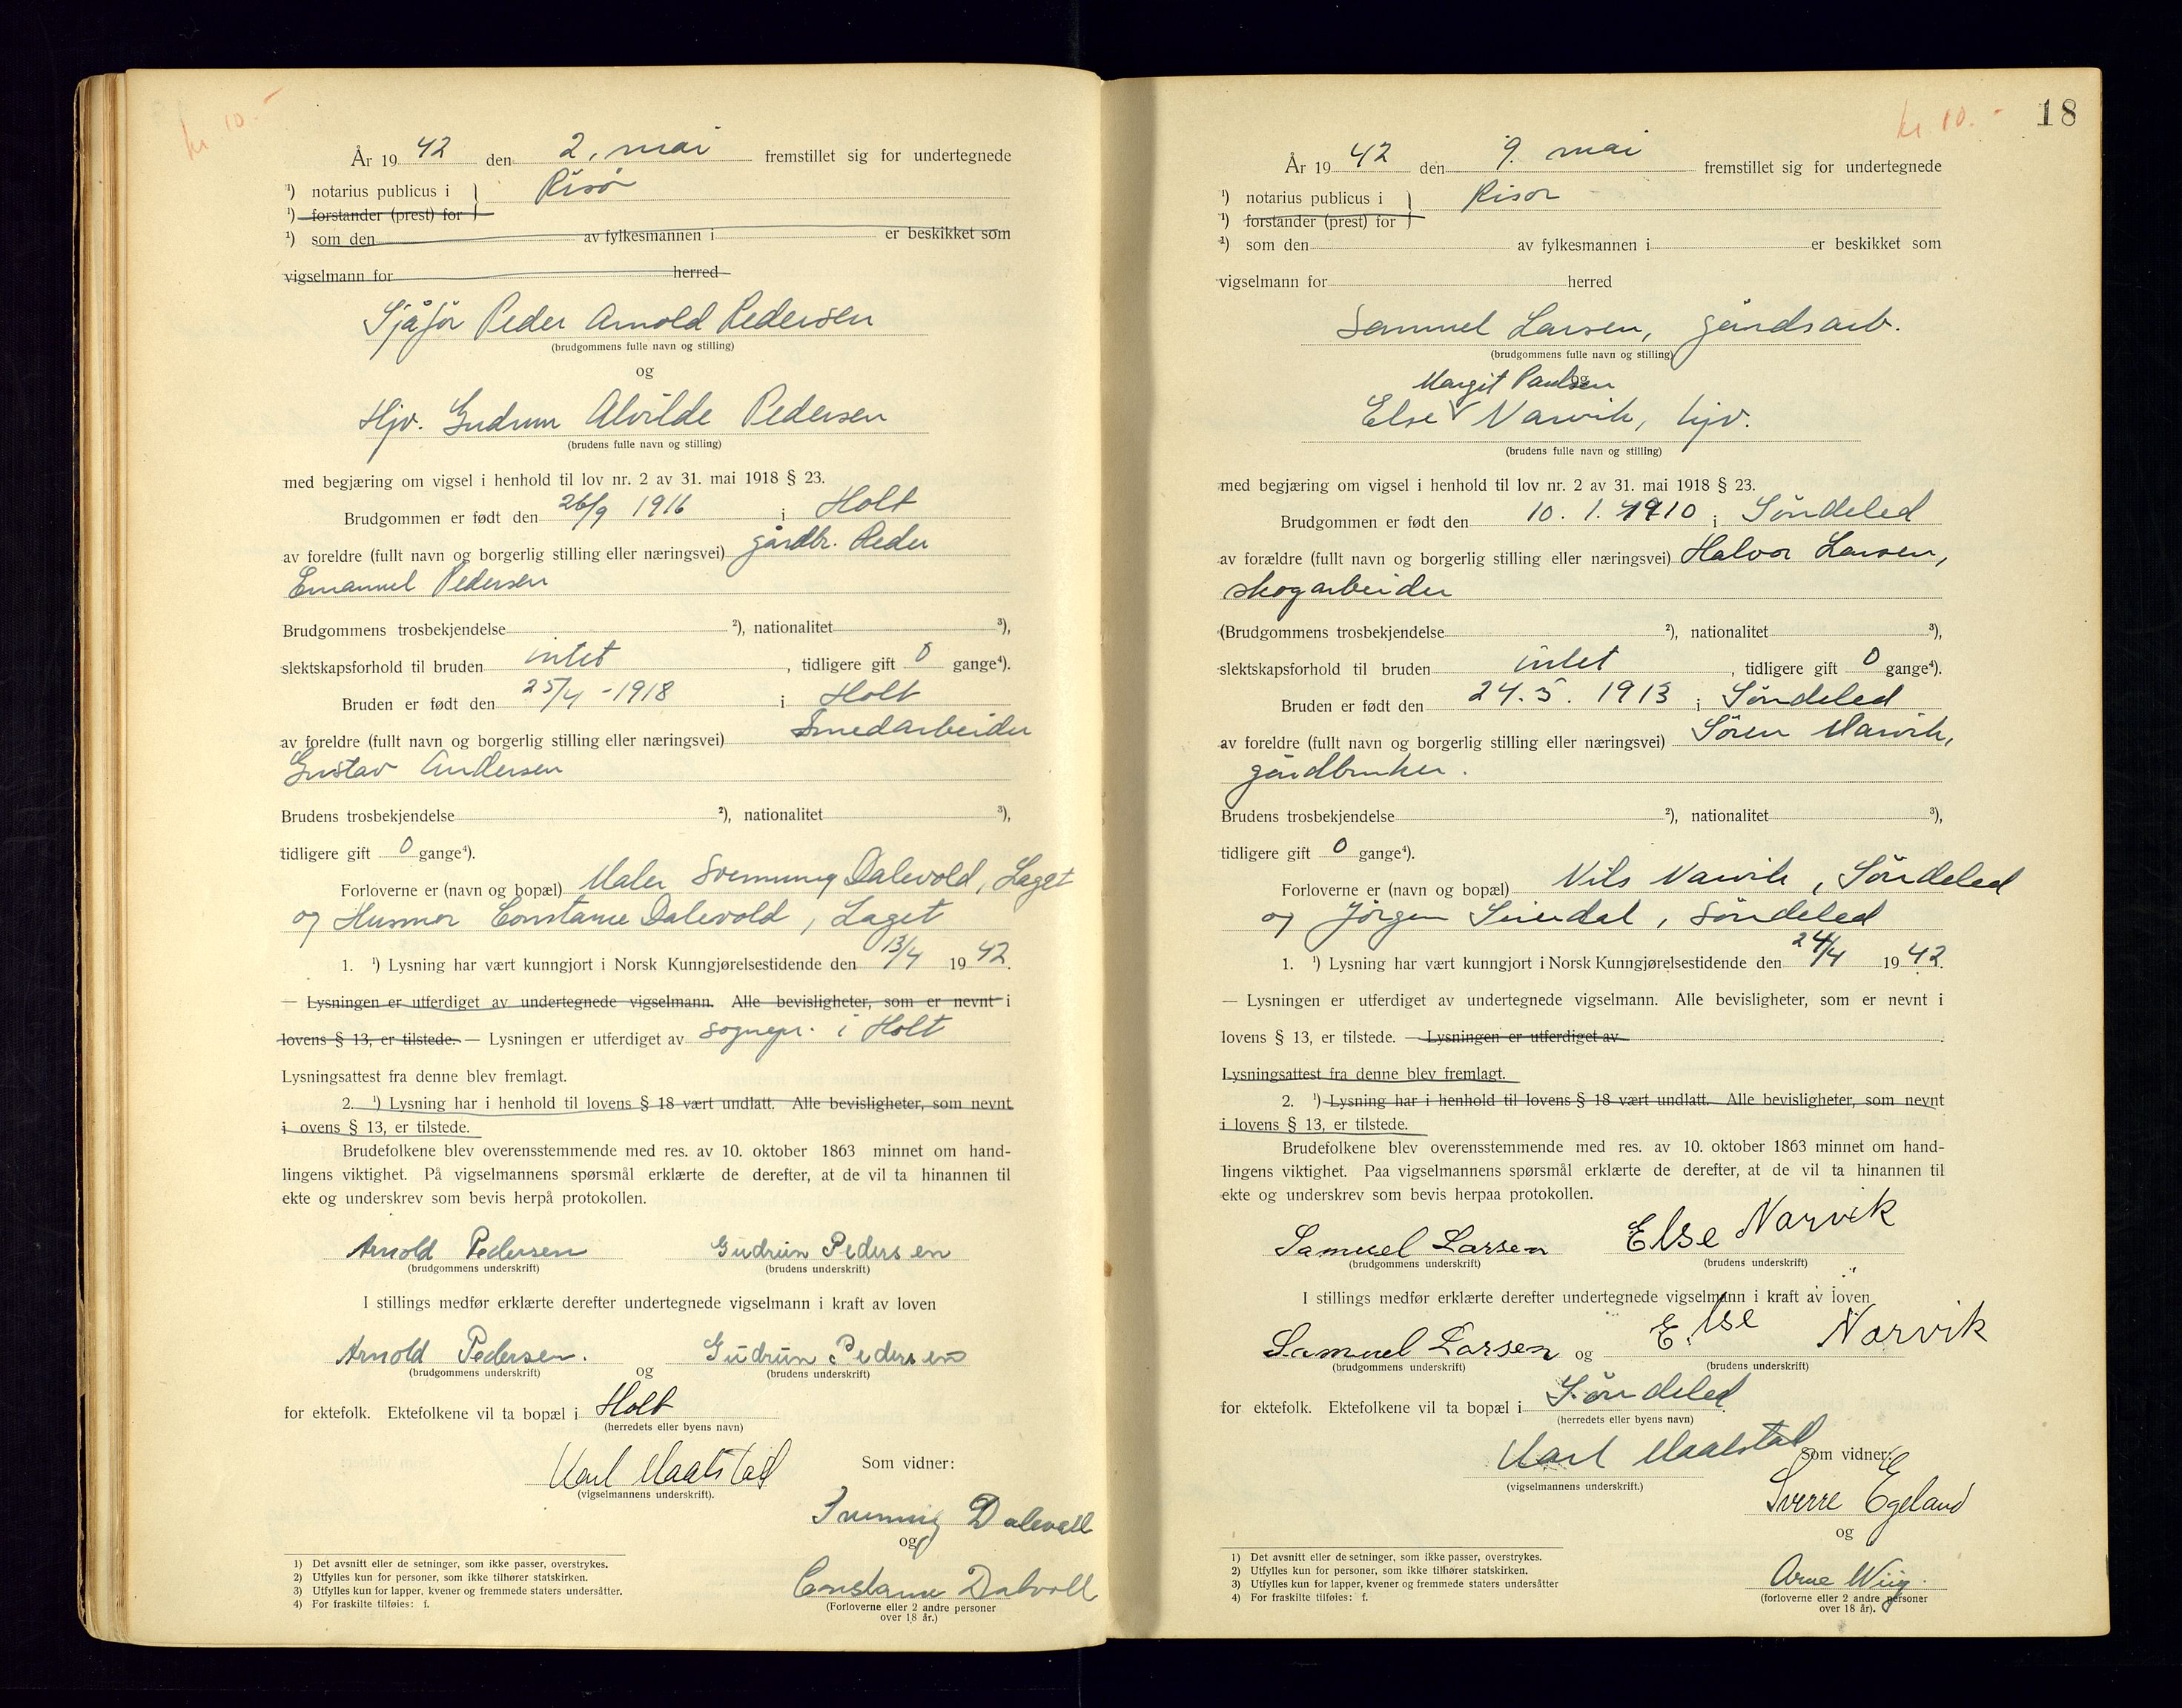 kr 10.-
År 19 42 den 2. mai fremstillet sig for undertegnede
¹) notarius publicus i } Risør
¹) forstander (prest) for
¹) som den av fylkesmannen i er beskikket som
vigselmann for herred
Sjåfør Peder Arnold Pedersen
(brudgommens fulle navn og stilling)
og
Hjv. Gudrun Alvilde Pedersen
(brudens fulle navn og stilling)
med begjæring om vigsel i henhold til lov nr. 2 av 31. mai 1918 § 23.
Brudgommen er født den 26/9 1916 i Holt
av foreldre (fullt navn og borgerlig stilling eller næringsvei) gårdbr. Peder
Emanuel Pedersen
Brudgommens trosbekjendelse ²), nationalitet ³),
slektskapsforhold til bruden intet, tidligere gift 0 gange⁴).
Bruden er født den 25/4 - 1918 i Holt
av foreldre (fullt navn og borgerlig stilling eller næringsvei) Smedarbeider
Gustav Andersen
Brudens trosbekjendelse ²), nationalitet ³),
tidligere gift 0 gange⁴).
Forloverne er (navn og bopæl) Maler Svennung Dalevold, Laget
og Husmor Constance Dalevold, Laget
1. ¹) Lysning har vært kunngjort i Norsk Kunngjørelsestidende den 13/4 19 42.
— Lysningen er utferdiget av undertegnede vigselmann. Alle bevisligheter, som er nevnt i
lovens § 13, er tilstede. — Lysningen er utferdiget av sognepr. i Holt
Lysningsattest fra denne blev fremlagt.
2. ¹) Lysning har i henhold til lovens § 18 vært undlatt. Alle bevisligheter, som nevnt
i ovens § 13, er tilstede.
Brudefolkene blev overensstemmende med res. av 10. oktober 1863 minnet om hand-
lingens viktighet. På vigselmannens spørsmål erklærte de derefter, at de vil ta hinannen til
ekte og underskrev som bevis herpå protokollen.
Arnold Pedersen Gudrun Pedersen
(brudgommens underskrift) (brudens underskrift)
I stillings medfør erklærte derefter undertegnede vigselmann i kraft av loven
Arnold Pedersen. Gudrun Pedersen
(brudgommens underskrift) og (brudens underskrift)
for ektefolk. Ektefolkene vil ta bopæl i Holt
(herredets eller byens navn)
Karl Maalstad Som vidner:
(vigselmannens underskrift).
Svennung Dalevoll
og
Constance Dalvoll
(Forloverne eller 2 andre personer
over 18 år.)
1) Det avsnitt eller de setninger, som ikke passer, overstrykes.
2) Utfylles kun for personer, som ikke tilhører statskirken.
3) Utfylles kun for lapper, kvener og fremmede staters undersåtter.
4) For fraskilte tilføies: f.
kr 10.-
18
År 19 42 den 9. mai fremstillet sig for undertegnede
¹) notarius publicus i } Risør
¹) forstander (prest) for
¹) som den av fylkesmannen i er beskikket som
vigselmann for herred
Samuel Larsen, gårdsarb.
(brudgommens fulle navn og stilling)
og
Margit Paulsen
Else Narvik, hjv.
(brudens fulle navn og stilling)
med begjæring om vigsel i henhold til lov nr. 2 av 31. mai 1918 § 23.
Brudgommen er født den 10. 1. 1910 i Søndeled
av forældre (fullt navn og borgerlig stilling eller næringsvei) Halvor Larsen,
skogarbeider
(Brudgommens trosbekjendelse ²), nationalitet ³),
slektskapsforhold til bruden intet, tidligere gift 0 gange⁴).
Bruden er født den 24. 5. 1913 i Søndeled
av foreldre (fullt navn og borgerlig stilling eller næringsvei) Søren Narvik,
gårdbruker.
Brudens trosbekjendelse ²), nationalitet ³),
tidligere gift 0 gange⁴).
Forloverne er (navn og bopæl) Nils Narvik, Søndeled
og Jørgen, Søndeled
1. ¹) Lysning har vært kunngjort i Norsk Kunngjørelsestidende den 24/4 19 42.
— Lysningen er utferdiget av undertegnede vigselmann. Alle bevisligheter, som er nevnt i
lovens § 13, er tilstede. — Lysningen er utferdiget av .
Lysningsattest fra denne blev fremlagt.
2. ¹) Lysning har i henhold til lovens § 18 vært undlatt. Alle bevisligheter, som nevnt
i lovens § 13, er tilstede.
Brudefolkene blev overensstemmende med res. av 10. oktober 1863 minnet om hand-
lingens viktighet. Paa vigselmannens spørsmål erklærte de derefter, at de vil ta hinannen til
ekte og underskrev som bevis herpaa protokollen.
Samuel Larsen Else Narvik
(brudgommens underskrift) (brudens underskrift)
I stillings medfør erklærte derefter undertegnede vigselmann i kraft av loven
Samuel Larsen og Else Narvik
(brudgommens underskrift) (brudens underskrift)
for ektefolk. Ektefolkene vil ta bopæl i Søndeled
(herredets eller byens navn)
Karl Maalstad Som vidner:
(vigselmannens underskrift.)
Sverre Egeland
og
Arne Wiig.
(forloverne eller 2 andre personer
over 18 år).
1) Det avsnitt eller de setninger, som ikke passer, overstrykes.
2) Utfylles kun for personer, som ikke tilhører statskirken.
3) Utfylles kun for lapper, kvener og fremmede staters undersåtter
4) For fraskilte tilføies: f.